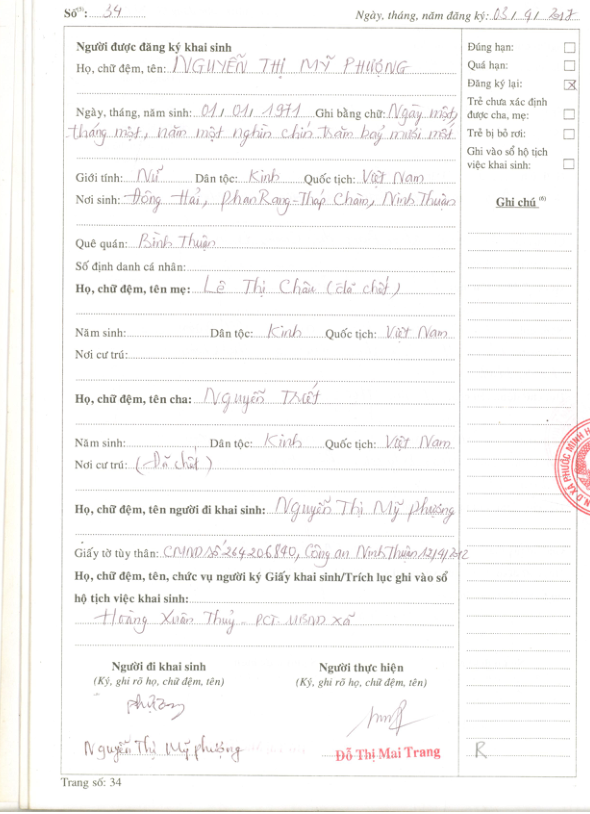 Số⁽⁵⁾: 34
Ngày, tháng, năm đăng ký: 03 / 9 / 2017
Người được đăng ký khai sinh
Họ, chữ đệm, tên: NGUYỄN THỊ MỸ PHƯỢNG
Ngày, tháng, năm sinh: 01, 01, 1971 Ghi bằng chữ: Ngày một,
tháng một, năm một nghìn chín trăm bảy mươi mốt
Giới tính: Nữ Dân tộc: Kinh Quốc tịch: Việt Nam
Nơi sinh: Đông Hải, Phan Rang-Tháp Chàm, Ninh Thuận
Quê quán: Bình Thuận
Số định danh cá nhân:
Họ, chữ đệm, tên mẹ: Lê Thị Châu (đã chết)
Năm sinh: Dân tộc: Kinh Quốc tịch: Việt Nam
Nơi cư trú:
Họ, chữ đệm, tên cha: Nguyễn
Năm sinh: Dân tộc: Kinh Quốc tịch: Việt Nam
Nơi cư trú: (Đã chết)
Họ, chữ đệm, tên người đi khai sinh: Nguyễn Thị Mỹ Phượng
Giấy tờ tùy thân: CMND số 264206840, Công an Ninh Thuận
Họ, chữ đệm, tên, chức vụ người ký Giấy khai sinh/Trích lục ghi vào sổ
hộ tịch việc khai sinh:
Hoàng Xuân Thuỷ - PCT UBND xã
Người đi khai sinh
(Ký, ghi rõ họ, chữ đệm, tên)
phượng
Nguyễn Thị Mỹ phượng
Người thực hiện
(Ký, ghi rõ họ, chữ đệm, tên)
Đỗ Thị Mai Trang
Trang số: 34
Đúng hạn:
Quá hạn:
Đăng ký lại: X
Trẻ chưa xác định
được cha, mẹ:
Trẻ bị bỏ rơi:
Ghi vào sổ hộ tịch
việc khai sinh:
Ghi chú ⁽⁶⁾
R